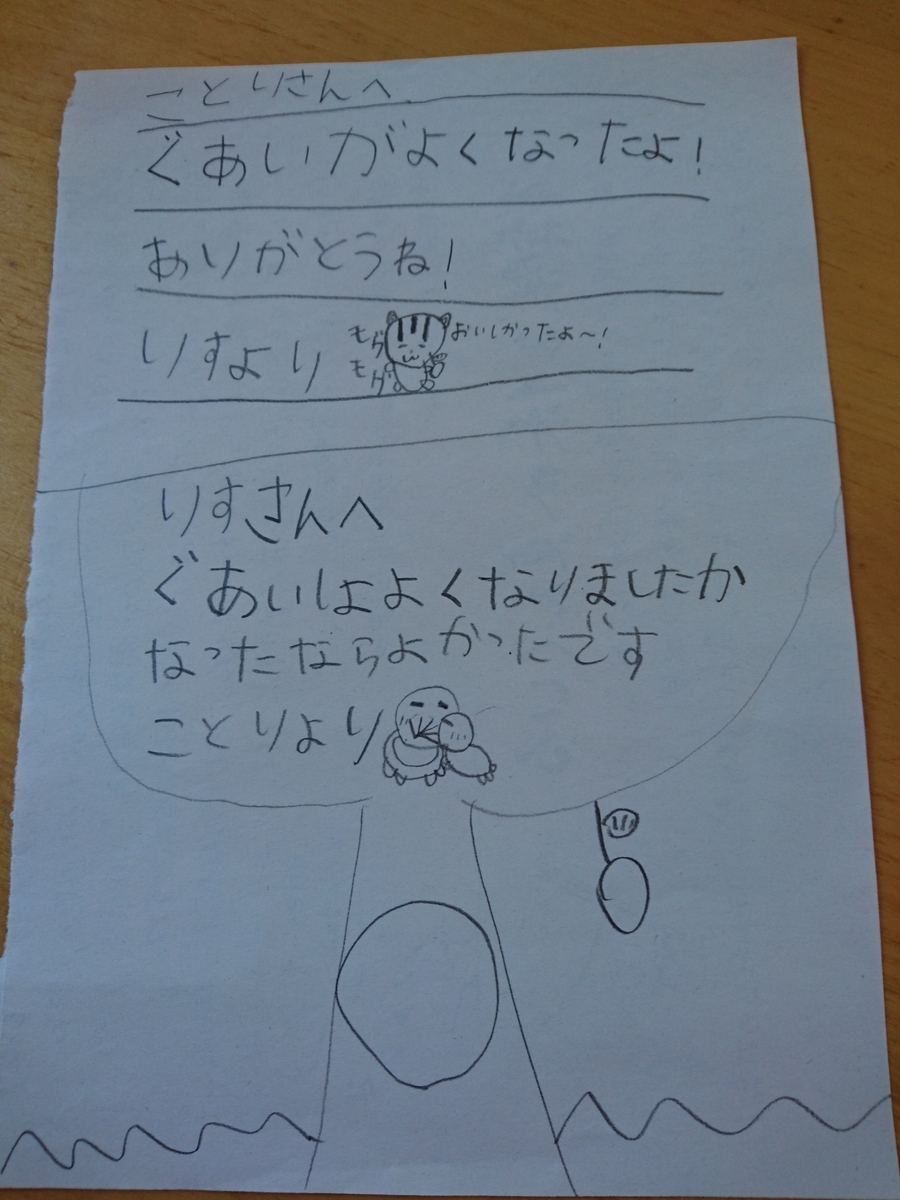 ことりさんへ
ぐあいがよくなったよ!
ありがとうね!
りすより
モグ
モグ
おいしかったよ〜!
りすさんへ
ぐあいはよくなりましたか
なったならよかったです
ことりより